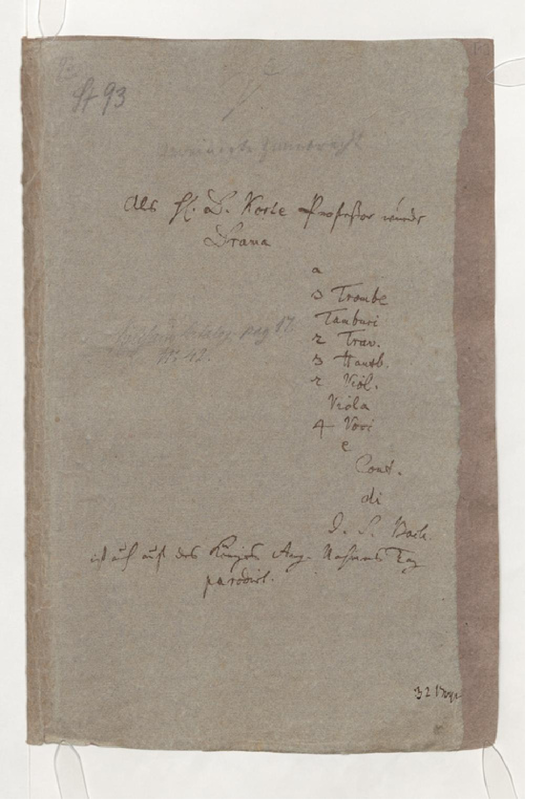 St 93
Als H. D. Korte Professor wurde
Drama
a
3 Trombe
Tamburi
2 Trav.
3 Hautb.
2 Viol.
Viola
4 Voci
e
Cont.
di
J. S. Bach
pag 87.
No 12.
ist auch auf des Königs Aug. Nahmens Tag
parodirt.